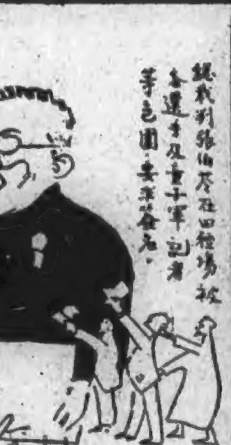 總裁判張伯苓在田徑場被
各選手及童子軍記者
等包圍,要求簽名。